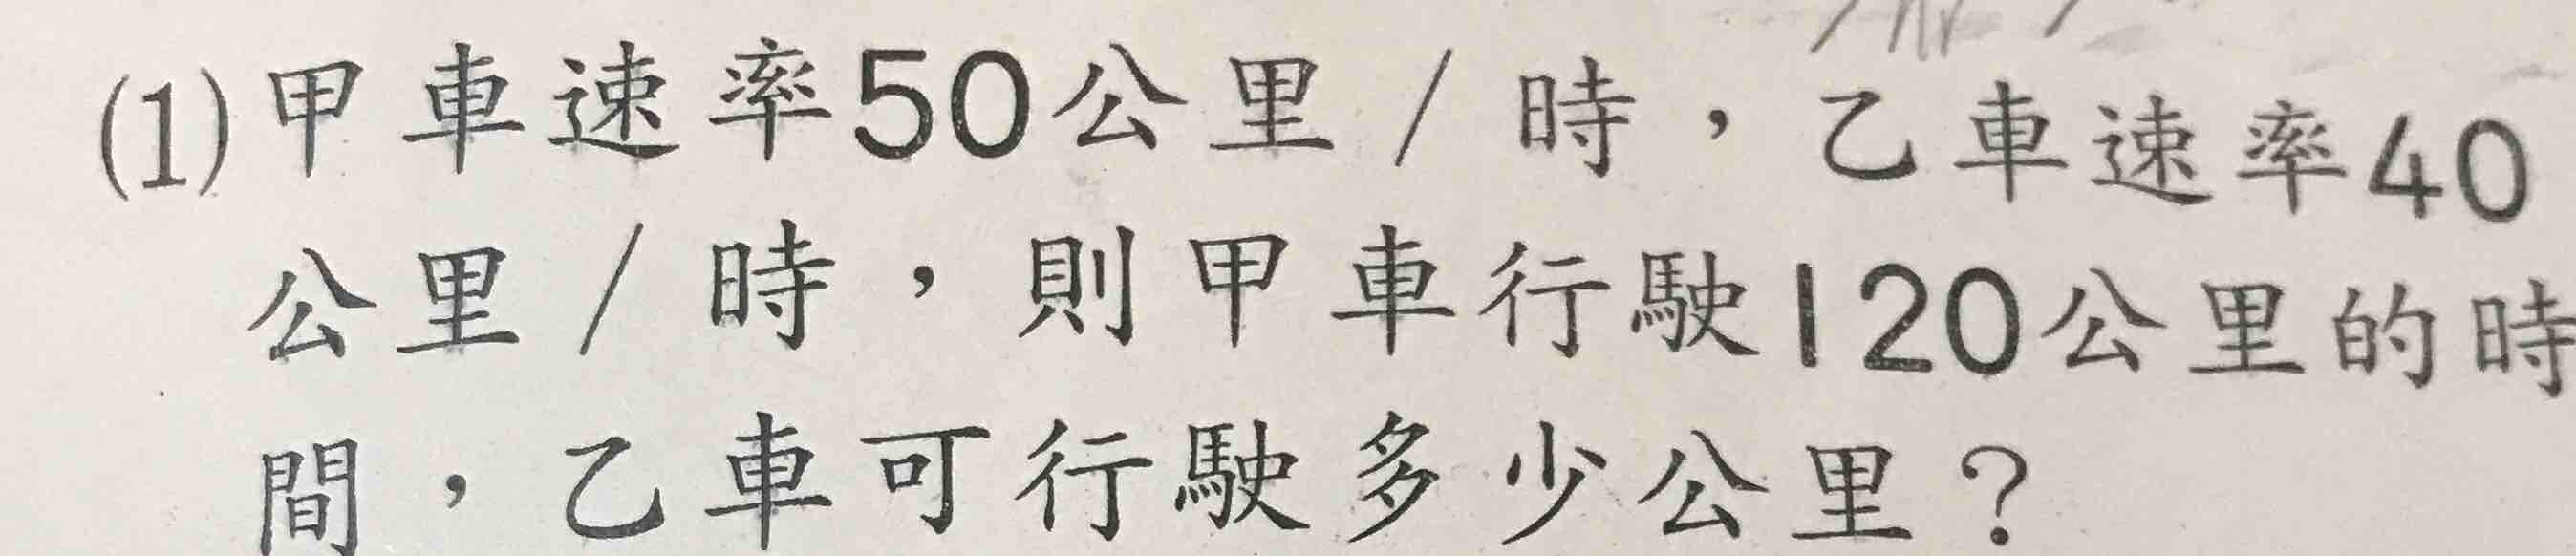 (1)甲車速率50公里/時，乙車速率40
公里/時，則甲車行駛120公里的時
間，乙車可行駛多少公里？